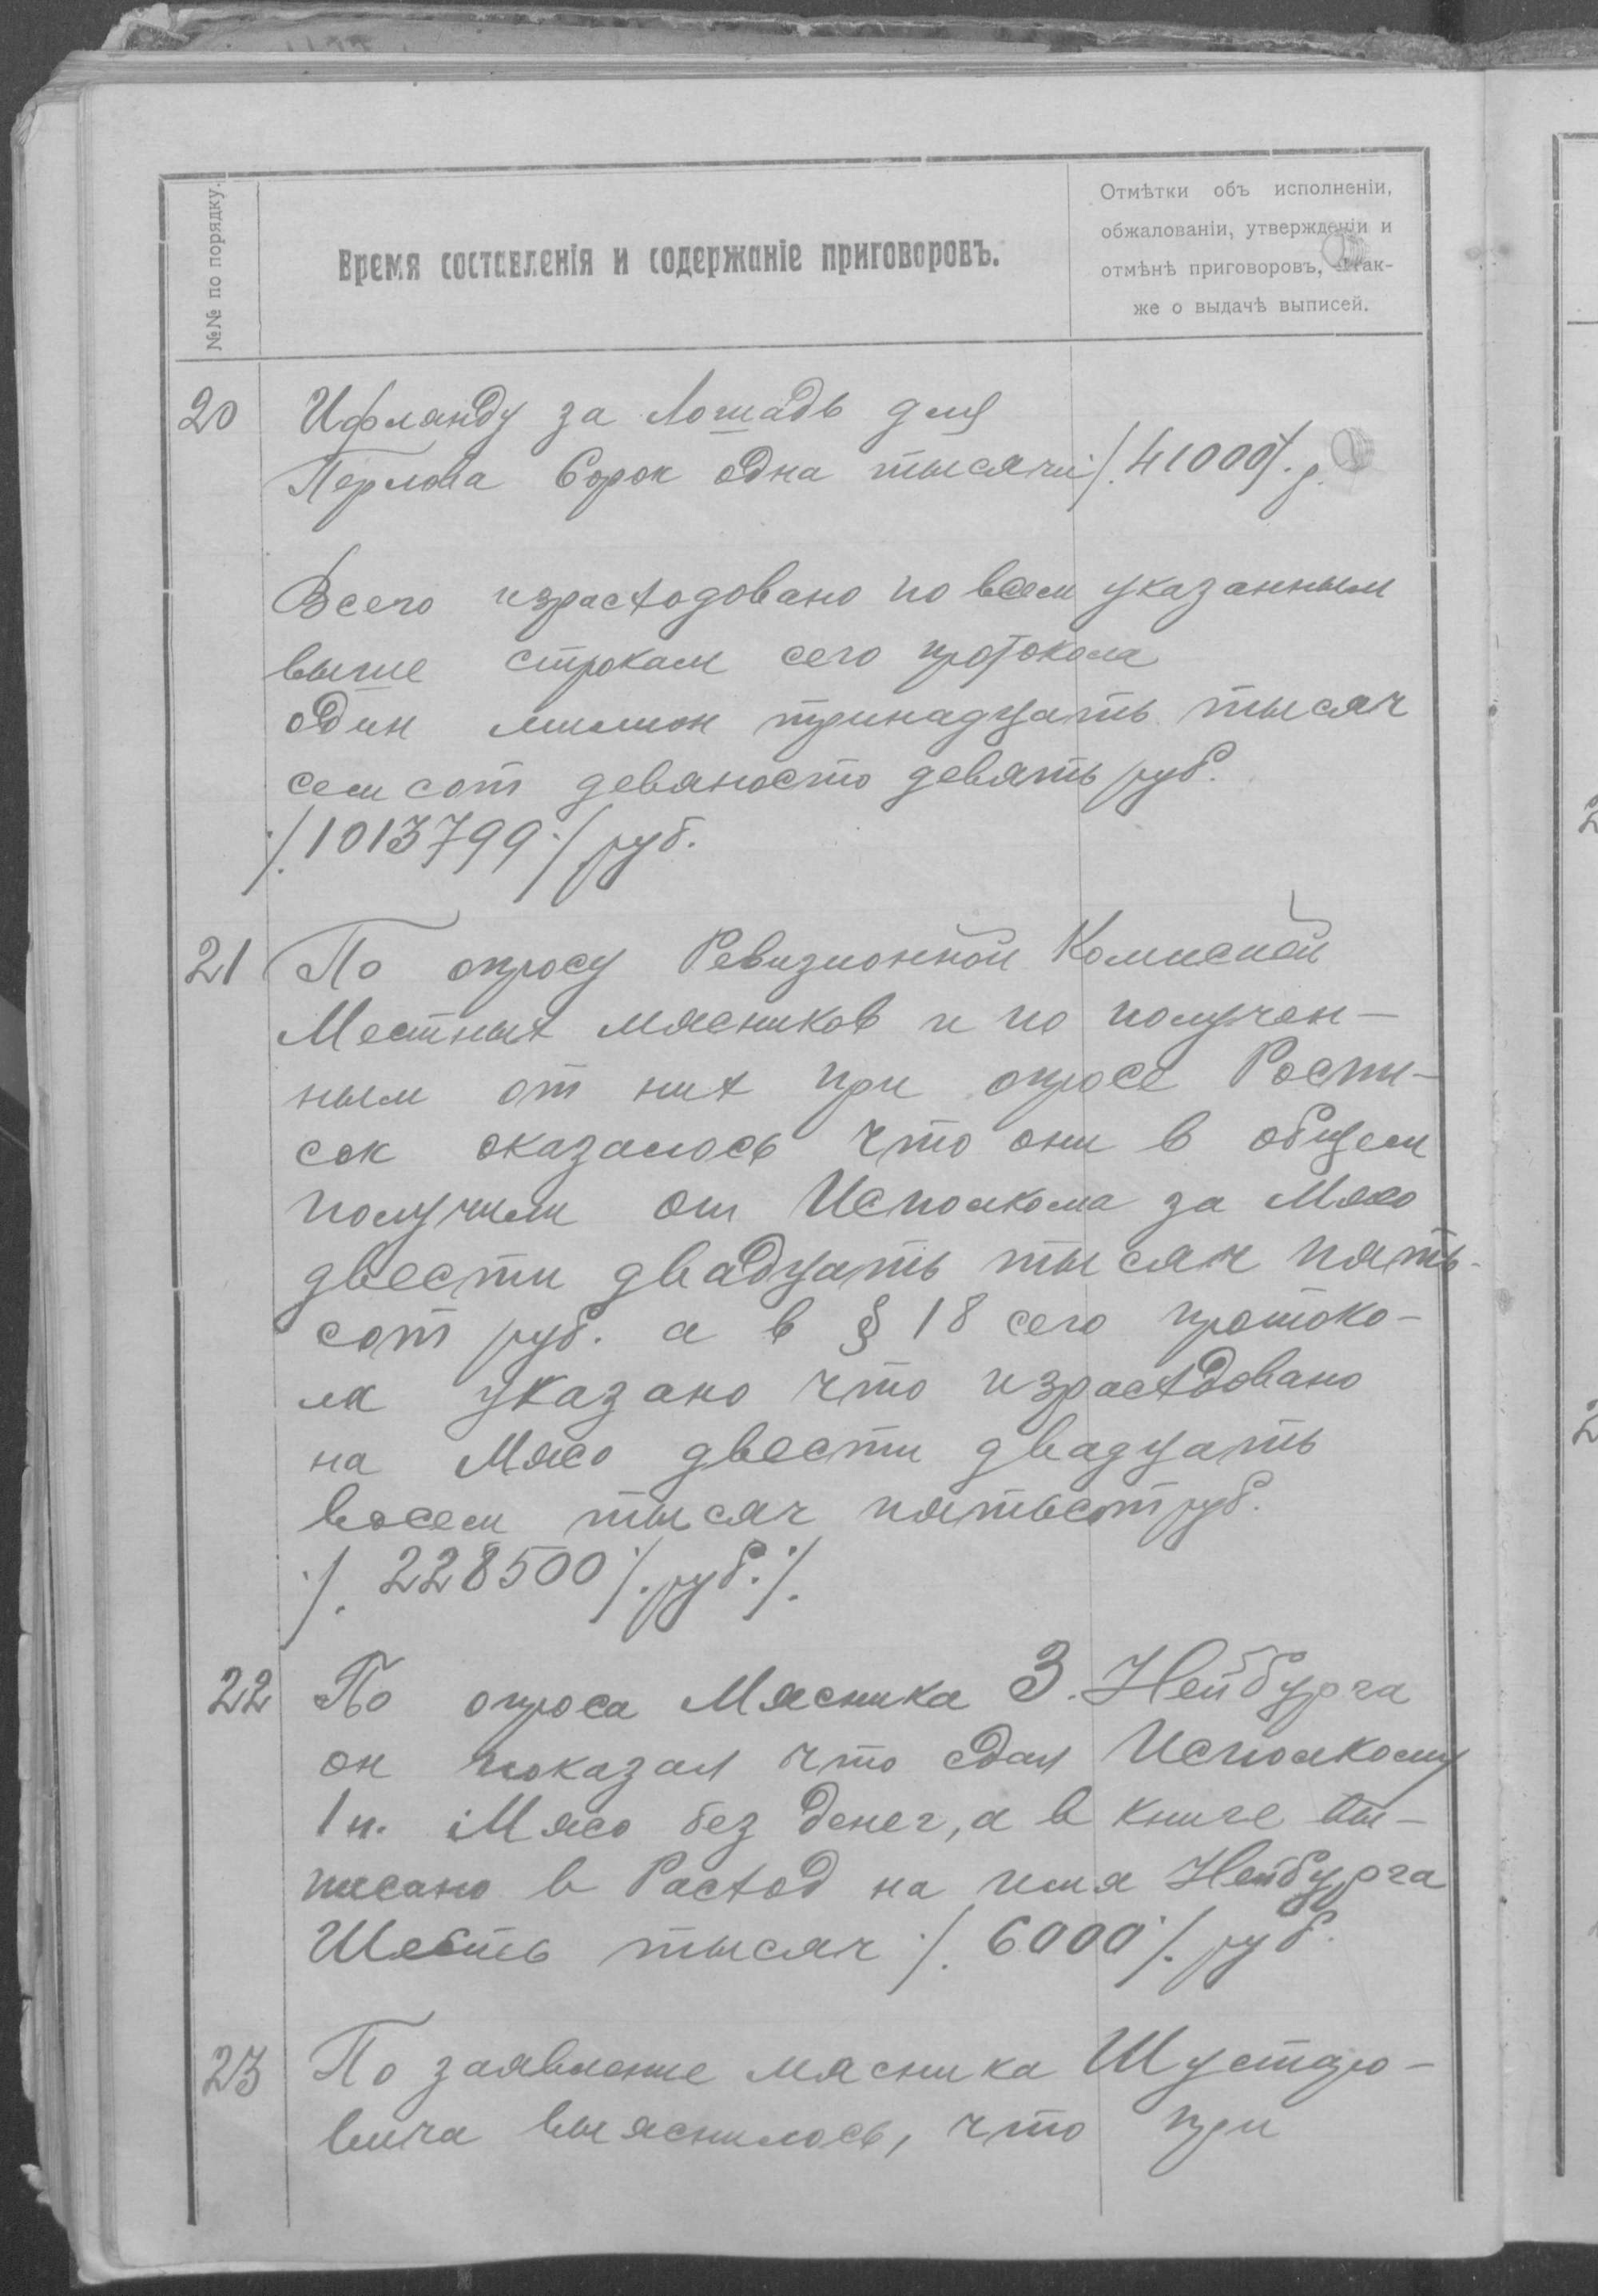 №№ по порядку.
Время составленія и содержаніе приговоровъ.
Отмѣтки объ исполненіи,
обжалованіи, утвержденіи и
отмѣнѣ приговоровъ, а так-
же о выдачѣ выписей.
20 Ифланду за Лошадь для
Перлова Сорок одна тысячи ./. 41000 ./. р.
Всего израсходовано по всем указанным
выше строкам сего протокола
один милион тринадцать тысяч
семсот девяносто девять руб.
./. 1013799 ./. руб.
21 По опросу Ревизионной Комисией
Местных мясников и по получен-
ным от них при опросе Распи-
сок оказалось что они в общем
получили от Исполкома за Мясо
двести двадцать тысяч пять-
сот руб. а в § 18 сего протоко-
ла указано что израсходовано
на Мясо двести двадцать
восем тысяч пятьсот руб.
./. 228500 ./. руб. ./.
22 По опроса Мясника З. Нейбурга
он показал что сдал Исполкому
1 п. Мясо без денег, а в книге вы-
писано в Расход на имя Нейбурга
Шесть тысяч ./. 6000 ./. руб.
23 По заявление мясника Шустаро-
вича выяснилось, что при